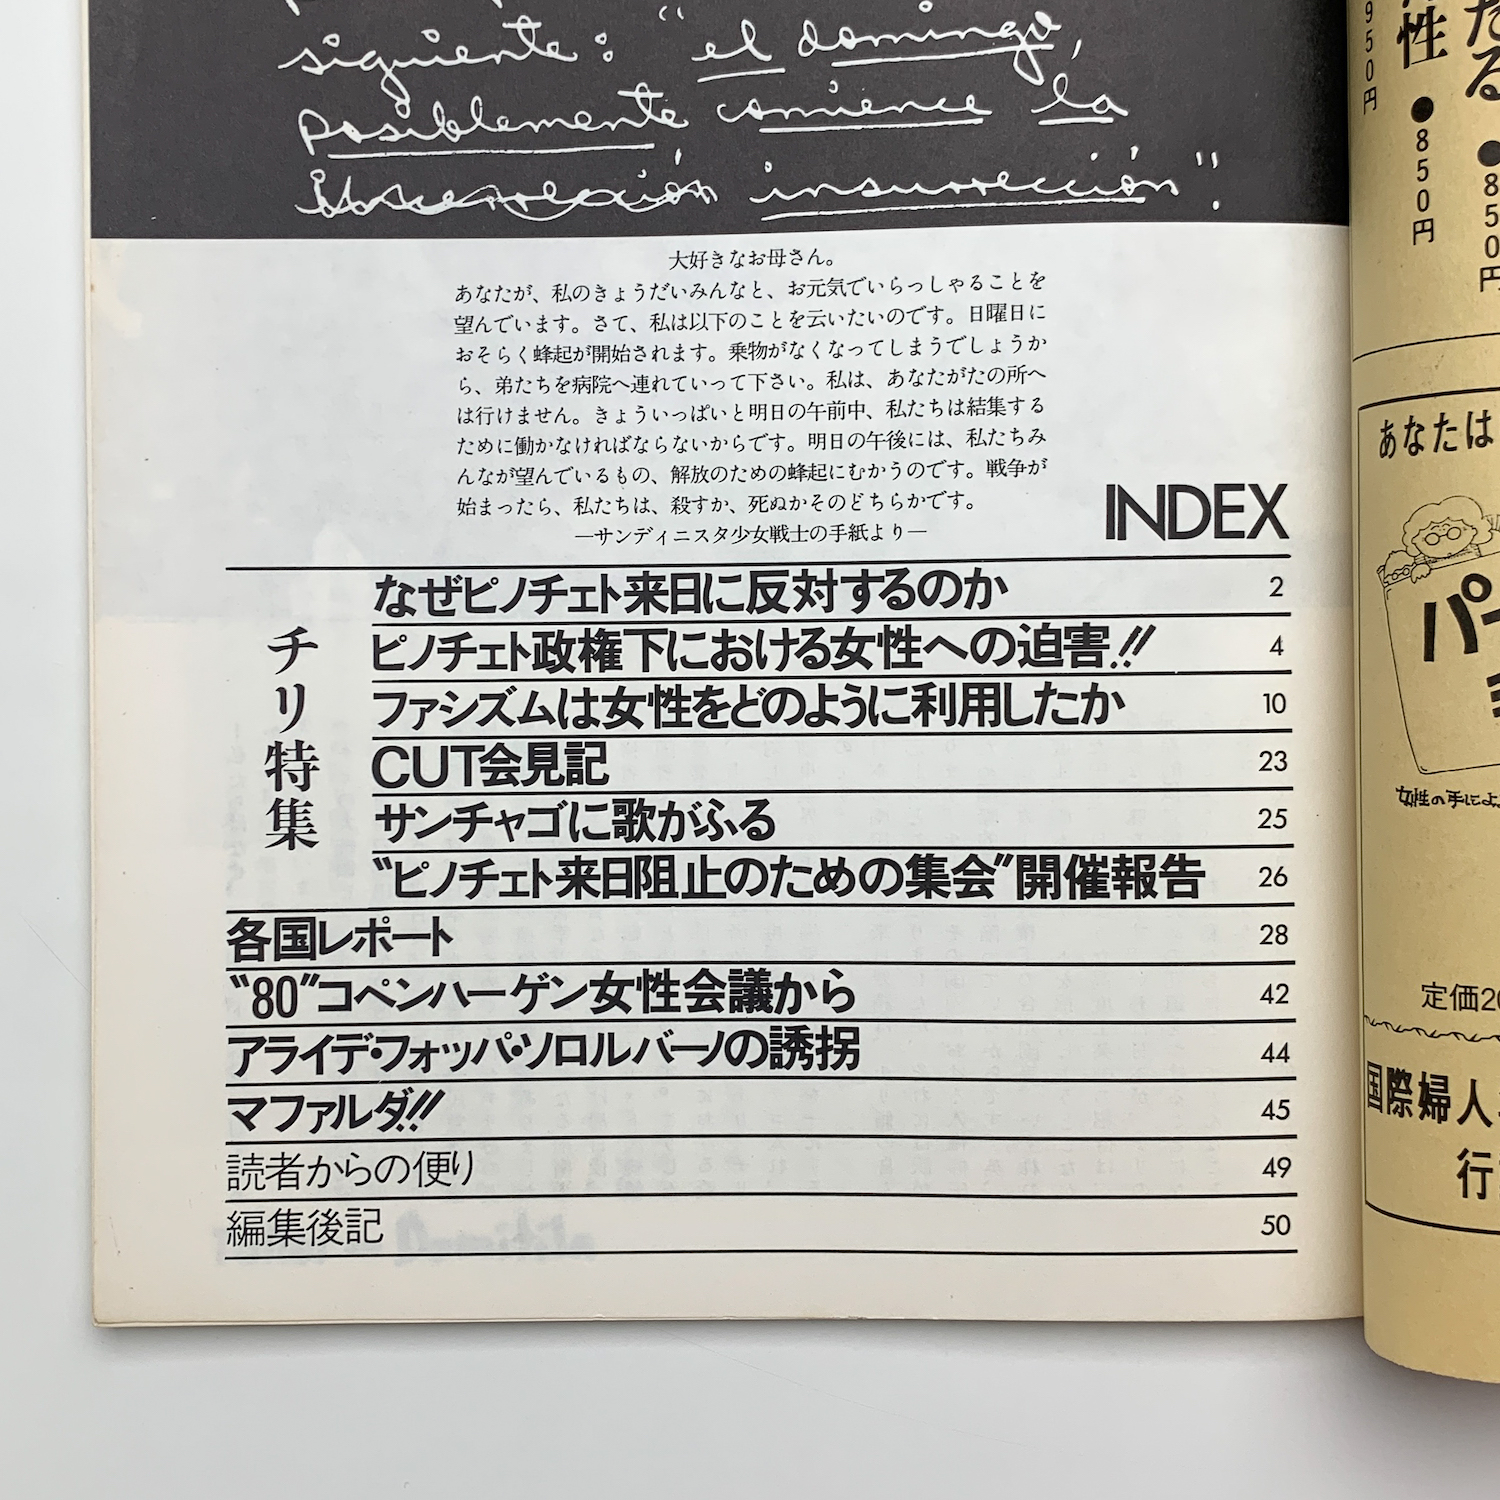 siguiente: "el domingo,
posiblemente comience la
insurrección".
大好きなお母さん。
あなたが、私のきょうだいみんなと、お元気でいらっしゃることを
望んでいます。さて、私は以下のことを云いたいのです。日曜日に
おそらく蜂起が開始されます。乗物がなくなってしまうでしょうか
ら、弟たちを病院へ連れていって下さい。私は、あなたがたの所へ
は行けません。きょういっぱいと明日の午前中、私たちは結集する
ために働かなければならないからです。明日の午後には、私たちみ
んなが望んでいるもの、解放のための蜂起にむかうのです。戦争が
始まったら、私たちは、殺すか、死ぬかそのどちらかです。
—サンディニスタ少女戦士の手紙より—
INDEX
チリ特集
なぜピノチェト来日に反対するのか 2
ピノチェト政権下における女性への迫害!! 4
ファシズムは女性をどのように利用したか 10
CUT会見記 23
サンチャゴに歌がふる 25
"ピノチェト来日阻止のための集会"開催報告 26
各国レポート 28
"80"コペンハーゲン女性会議から 42
アライデ・フォッパ・ソロルバーノの誘拐 44
マファルダ!! 45
読者からの便り 49
編集後記 50
たる ●850円
性 ●850円
950円
あなたは
パー
女性の手によ
定価20
国際婦人
行